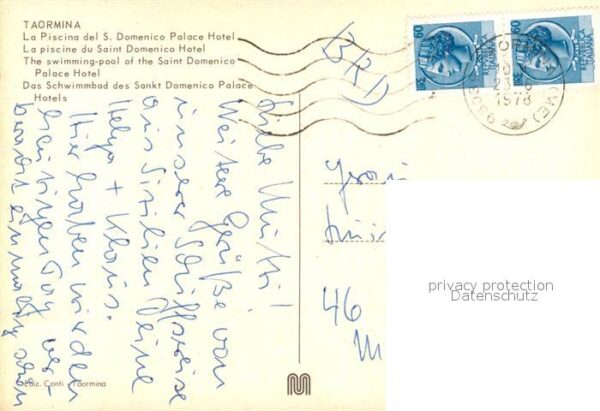 TAORMINA
La Piscina del S. Domenico Palace Hotel
La piscine du Saint Domenico Hotel
The swimming-pool of the Saint Domenico
Palace Hotel
Das Schwimmbad des Sankt Domenico Palace
Hotels
BRD
60
60
1978
(ME)
Liebe Mutti!
Weitere Grüße von
unserer Schiffsreise
aus Sizilien Deine
Helga + Klaus.
Hier haben wir den
heutigen Tag ver-
bracht einmalig schön
46
privacy protection
Datenschutz
Ediz. Conti - Taormina